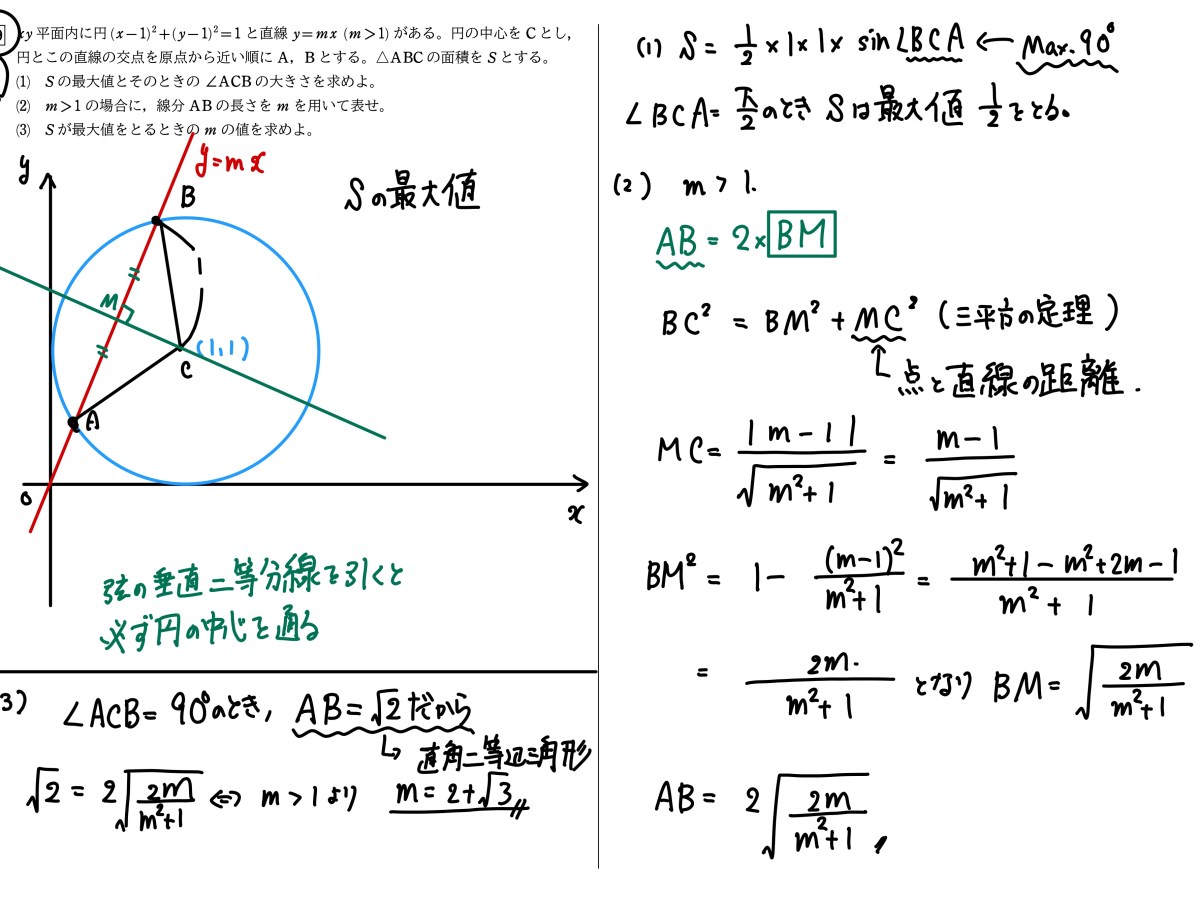 xy 平面内に円 (x−1)²+(y−1)²=1 と直線 y=mx (m>1) がある。円の中心を C とし，
円とこの直線の交点を原点から近い順に A，B とする。△ABC の面積を S とする。
(1) S の最大値とそのときの ∠ACB の大きさを求めよ。
(2) m>1 の場合に，線分 AB の長さを m を用いて表せ。
(3) S が最大値をとるときの m の値を求めよ。
y
y=mx
B
Sの最大値
1
M
(1,1)
C
A
O
x
弦の垂直二等分線を引くと
必ず円の中心を通る
3) ∠ACB= 90°のとき, AB=√2だから
↳ 直角二等辺三角形
√2 = 2√(2m/(m²+1)) ⇔ m>1より m=2+√3
(1) S= 1/2 ×1×1× sin∠BCA ← Max. 90°
∠BCA= π/2 のとき Sは最大値 1/2 をとる。
(2) m > 1.
AB = 2×BM
BC² = BM² + MC² (三平方の定理)
点と直線の距離.
MC= |m-1|/√(m²+1) = (m-1)/√(m²+1)
BM² = 1- (m-1)²/(m²+1) = (m²+1-m²+2m-1)/(m²+1)
= 2m/(m²+1) となり BM= √(2m/(m²+1))
AB= 2√(2m/(m²+1))